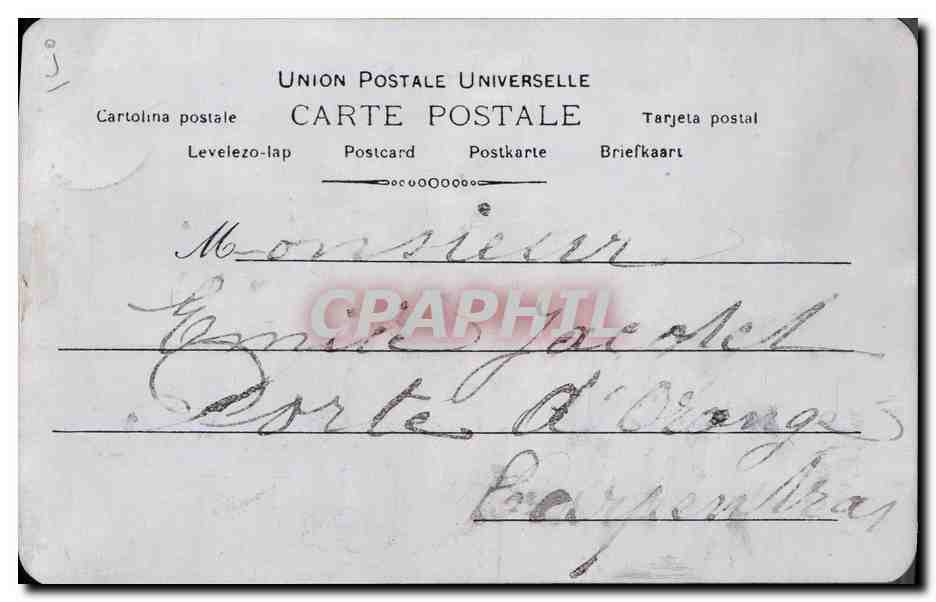 j
UNION POSTALE UNIVERSELLE
Cartolina postale CARTE POSTALE Tarjeta postal
Levelezo-lap Postcard Postkarte Briefkaart
Monsieur
CPARPHIL
Emile
Porte d'Orange
Carpentras